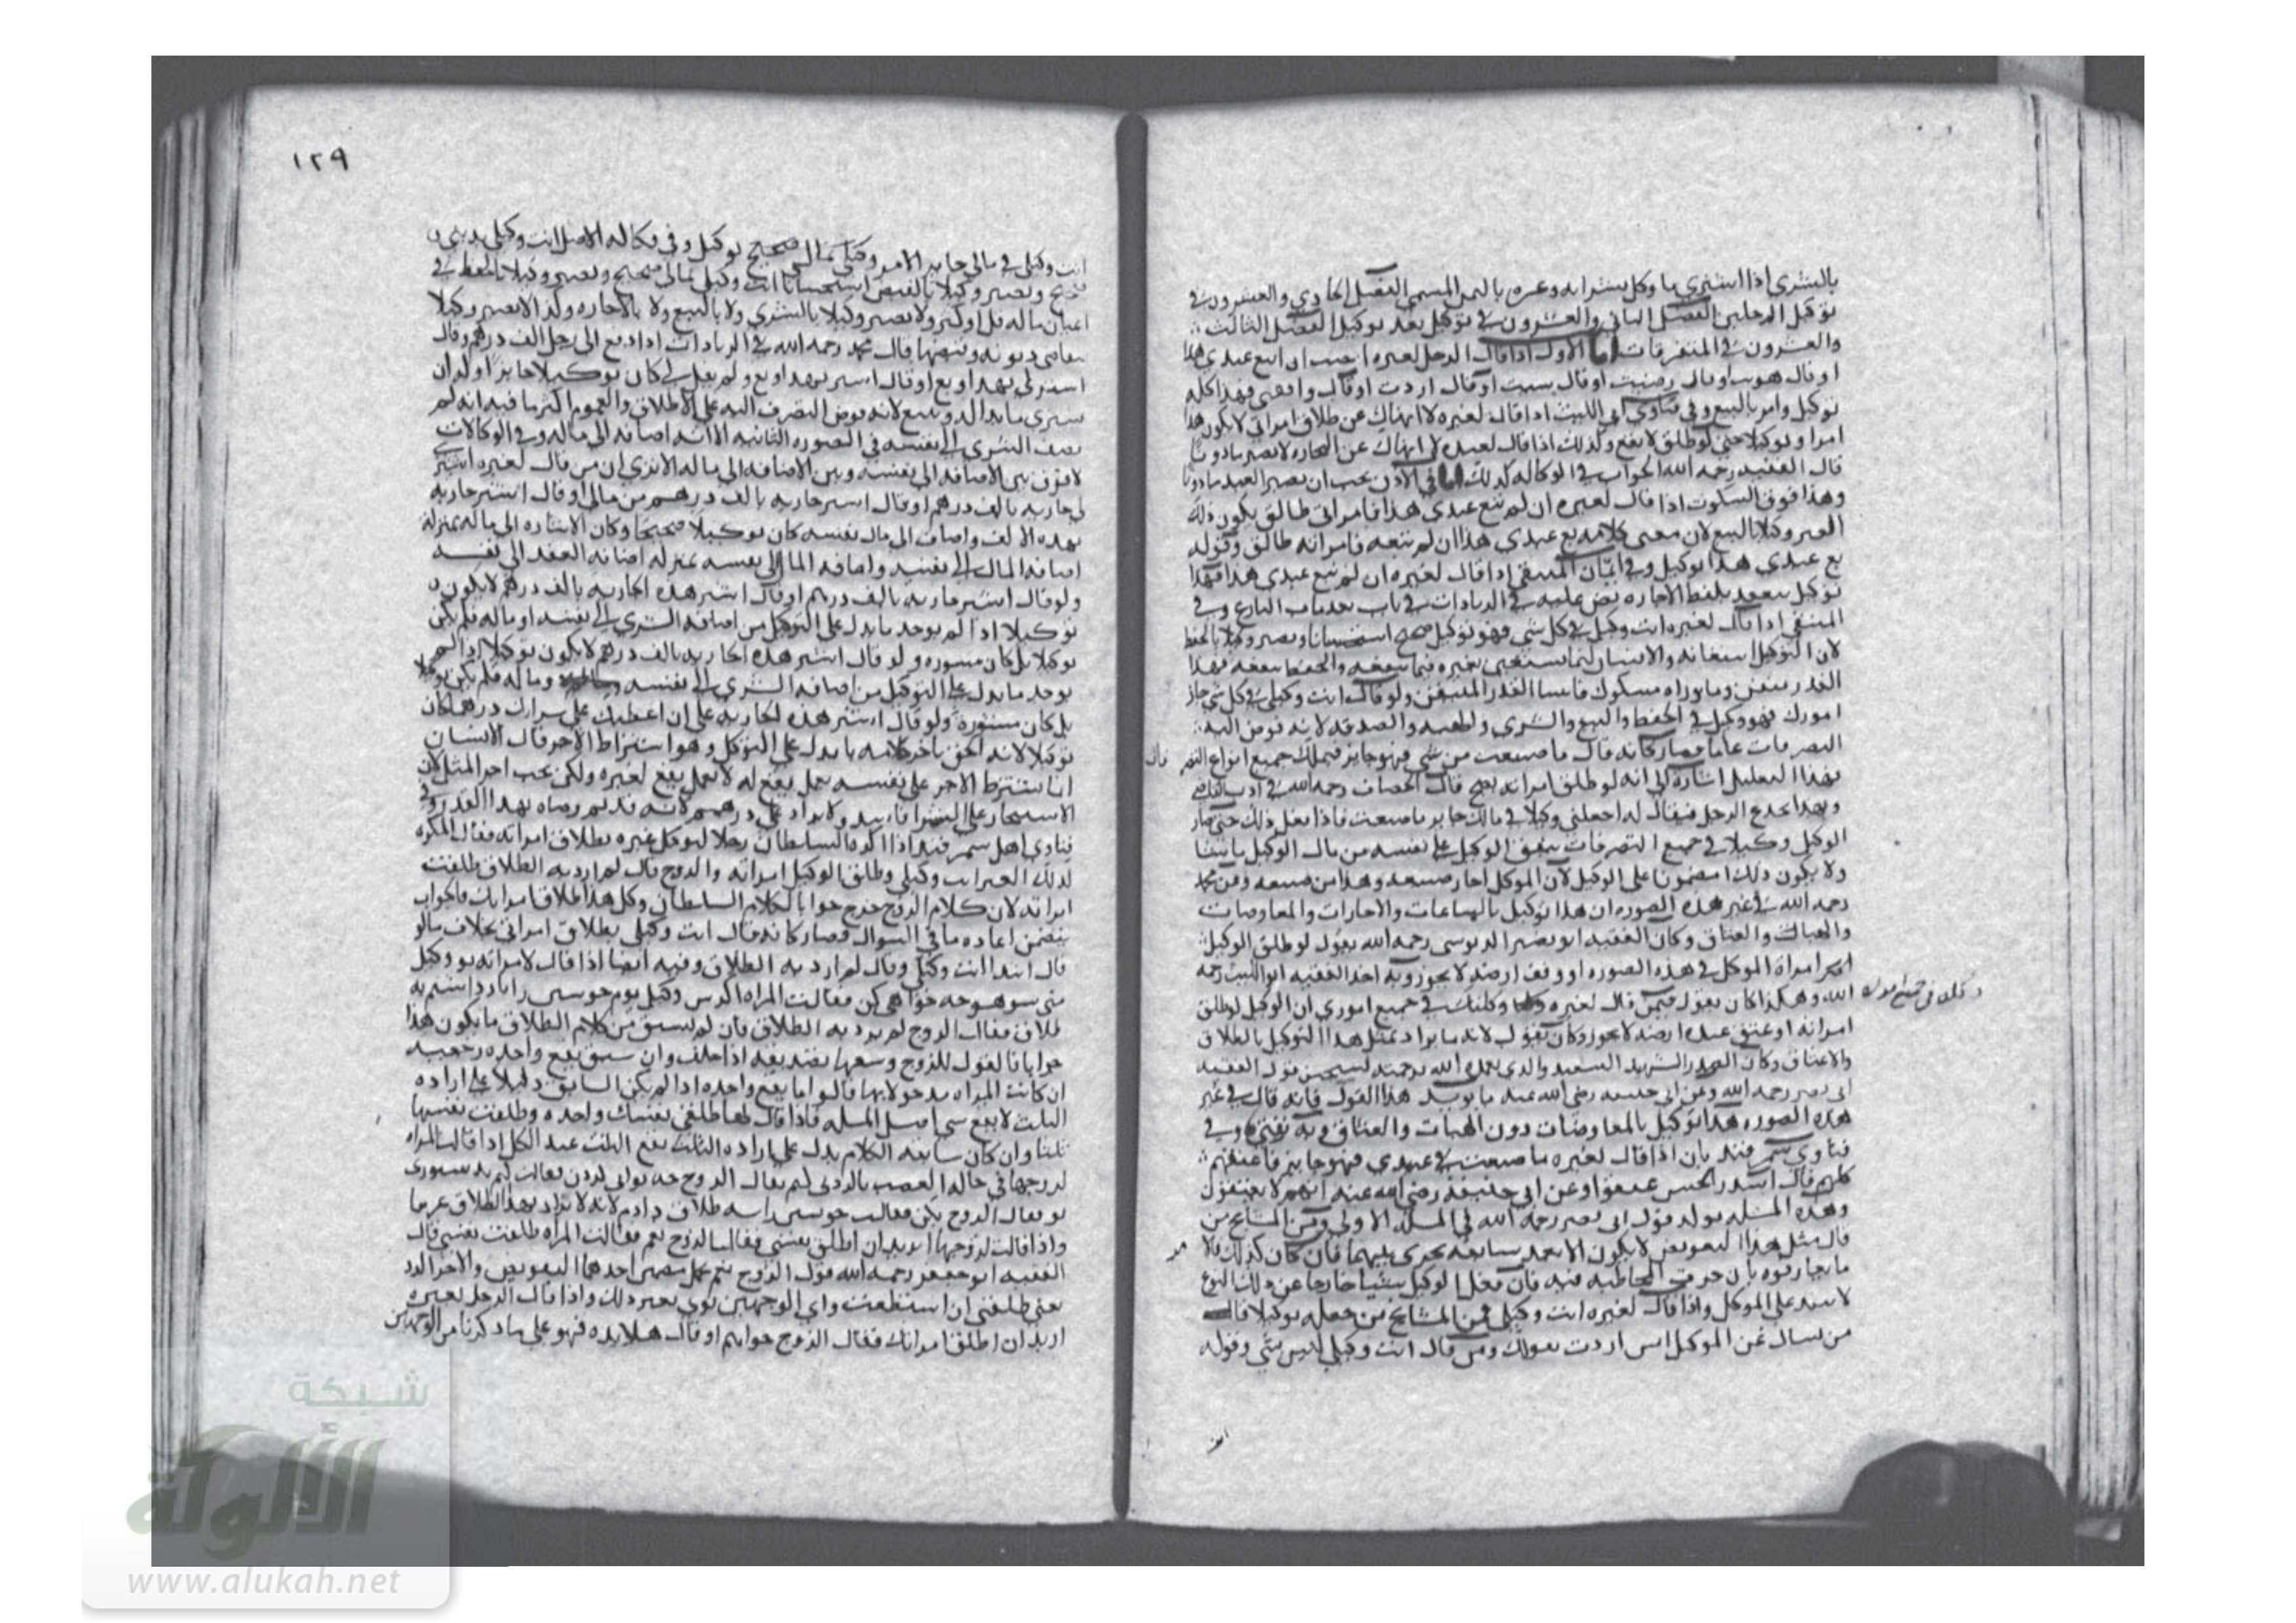 بالشرى اذا اشترى ما وكل بشرائه وغيره بالثمن المسمى الفصل الحادي والعشرون في
توكيل الرجلين الفصل الثاني والعشرون في توكيل بعد توكيل الفصل الثالث
والعشرون في المتفرقات اما الاول اذا قال الرجل لغيره احببت ان تبيع عبدي هذا
او قال هويت او قال رضيت او قال شيت او قال اردت او قال وافقني فهذا كله
توكيل وامر بالبيع وفي فتاوي ابي الليث اذا قال لغيره لا انهاك عن طلاق امراتي لا يكون هذا
امرا وتوكيلا حتى لو طلق لا يقع وكذلك اذا قال لعبده لا انهاك عن التجارة لا يصير ماذونا
قال الفقيه رحمه الله الجواب في الوكالة كذلك اما في الاذن يجب ان يصير العبد ماذونا
وهذا فوق السكوت اذا قال لغيره ان لم تبع عبدي هذا فامراتي طالق يكون ذلك
الغير وكيلا بالبيع لان معنى كلامه بع عبدي هذا ان لم تبعه فامراته طالق وقوله
بع عبدي هذا توكيل وفي ايمان المنتقى اذا قال لغيره ان لم تبع عبدي هذا فهذا
توكيل ينعقد بلفظ الاجارة نص عليه في الزيادات في باب
المنتقى اذا قال لغيره انت وكيلي في كل شي فهو توكيل صحيح استحسانا ويصير وكيلا بالحفظ
لان التوكيل استعانة والانسان انما يستعين بغيره فيما ينفعه والحفظ ينفعه فهذا
القدر متيقن وما وراه مشكوك فاثبتنا القدر المتيقن ولو قال انت وكيلي في كل شي جاز
امورك فهو وكيل في الحفظ والبيع والشرى والهبة والصدقة لانه فوض اليه
التصرفات عاما فصار كانه قال ما صنعت من شي فهو جايز فيملك جميع انواع التصر
فهذا التعليل اشارة الى انه لو طلق امراته يصح قال الخصاف رحمه الله في ادب القاضي
وبهذا يخدع الرجل فيقال له اجعلني وكيلا في مالك جايز ما صنعت فاذا فعل ذلك حتى صار
الوكيل وكيلا في جميع التصرفات ينفق الوكيل على نفسه من مال الوكيل ما شا
ولا يكون ذلك مضمونا على الوكيل لان الموكل اجاز صنيعه وهذا من صنيعه وعن محمد
رحمه الله في غير هذه الصورة ان هذا توكيل بالبياعات والاجارات والمعاوضات
والهبات والعتاق وكان الفقيه ابو نصر الدبوسي رحمه الله يقول لو طلق الوكيل
امراة الموكل في هذه الصورة او وقف ارضه لا يجوز وبه اخذ الفقيه ابو الليث رحمه
الله وهكذا كان يقول فيمن قال لغيره وكلتك في جميع اموري ان الوكيل لو طلق
امراته او عتق عبده ارضه لا يجوز وكان يقول لانه ما يراد بمثل هذا التوكيل بالطلاق
والاعتاق وكان الصدر الشهيد السعيد والدي تغمده الله برحمته يستحسن قول الفقيه
ابي نصر رحمه الله وعن ابي حنيفة رضي الله عنه ما يويد هذا القول فانه قال في غير
هذه الصورة هذا توكيل بالمعاوضات دون الهبات والعتاق وبه نفتي وفي
فتاوي سمرقند بان اذا قال لغيره ما صنعت في عبيدي فهو جايز فاعتقهم
كلهم قال اسد الحسن عتقوا وعن ابي حنيفة رضي الله عنه انهم لا يعتقون
وهذه المسئلة تويد قول ابي نصر رحمه الله في المسئلة الاولى ومن المشايخ من
قال مثل هذا التفويض لا يكون الا بعد سابقة تجري بينهما فان كان كذلك فالا
ما تعارفوه بان جرت المخاطبة فيه فان فعل الوكيل شيئا خارجا عن ذلك النوع
لا ينفذ على الموكل واذا قال لغيره انت وكيلي فمن المشايخ من جعله توكيلا قال
من يسال عن الموكل ايش اردت بقولك ومن قال انت وكيلي ليس بشي وقوله
١٢٩
انت وكيلي في مالي جايز الامر وكيلي بمالي صحيح توكيل وفي وكالة الاصل انت وكيلي بديني
صحيح ويصير وكيلا بالقبض استحسانا انت وكيلي بمالي صحيح ويصير وكيلا بالحفظ في
اعيان ماله قل او كثر ولا يصير وكيلا بالشرى ولا بالبيع ولا بالاجارة ولذا لا يصير وكيلا
بتقاضي ديونه وقبضها قال محمد رحمه الله في الزيادات اذا دفع الى رجل الف درهم وقال
اشتر لي بهذا او بع او قال اشتر بهذا وبع ولم يقل لي كان توكيلا جايزا وله ان
يشري ما بدا له ويبيع لانه فوض التصرف اليه على الاطلاق والعموم اكثر ما فيه انه لم
يضف الشرى الى نفسه في الصورة الثانية الا انه اضافه الى ماله وفي الوكالات
لا فرق بين الاضافة الى نفسه وبين الاضافة الى ماله الا ترى ان من قال لغيره اشتر
لي جارية بالف درهم او قال اشتر جارية بالف درهم من مالي او قال اشتر جارية
بهذه الالف واضاف الى مال نفسه كان توكيلا صحيحا وكان الاشارة الى ماله بمنزلة
اضافة المال الى نفسه واضافة المال الى نفسه بمنزلة اضافة العقد الى نفسه
ولو قال اشتر جارية بالف درهم او قال اشتر هذه الجارية بالف درهم لا يكون
توكيلا اذا لم يوجد ما يدل على التوكيل من اضافة الشرى الى نفسه او ماله فلم يكن
توكيلا بل كان مشورة ولو قال اشتر هذه الجارية بالف درهم لا يكون توكيلا اذا لم
يوجد ما يدل على التوكيل من اضافة الشرى الى نفسه وماله فلم يكن توكيلا
بل كان مشورة ولو قال اشتر هذه الجارية على ان اعطيك على شرائك درهما كان
توكيلا لانه الحق باخر كلامه ما يدل على التوكل وهو اشتراط الاجر قال الانسان
انما يشترط الاجر على نفسه بعمل يقع له لا بعمل يقع لغيره ولكن يجب اجر المثل لان
الاستيجار على الشرا فاسد ولا يزاد على درهم لانه قد تم رضاه بهذا القدر وفي
فتاوي اهل سمرقند اذا اكره السلطان رجلا ليوكل غيره بطلاق امراته فقال المكره
لذلك الغير انت وكيلي وطلق الوكيل امراته والزوج قال لم ارد به الطلاق طلقت
امراته لان كلام الزوج خرج جوابا لكلام السلطان وكل هذا طلاق امراتك والجواب
يتضمن اعادة ما في السوال فصار كانه قال انت وكيلي بطلاق امراتي بخلاف ما لو
قال ابتدا انت وكيلي وقال لم ارد به الطلاق وفيه ايضا اذا قال لامراته تو وكيل
طلاق فقال الزوج لم يرد به الطلاق فان لم يسبق من كلام الطلاق ما يكون هذا
جوابا فالقول للزوج وسعها تصديقه اذا حلف وان سبق يقع واحدة رجعية
ان كانت المراة مدخولا بها قالوا انما يقع واحدة اذا لم يكن السابق دليلا على ارادة
الثلث لا يقع شي اصل المسئلة فاذا قال لها طلقي نفسك واحدة وطلقت نفسها
ثلثا وان كان سابقة الكلام يدل على ارادة الثلث يقع الثلث عند الكل اذا قالت المراة
واذا قالت لزوجها اتريد ان اطلق نفسي فقال الزوج نعم فقالت المراة طلقت نفسي قال
الفقيه ابو جعفر رحمه الله قول الزوج نعم يحتمل معنيين احدهما التفويض والاخر الرد
يعني طلقي ان استطعت واي الوجهين نوى يعتبر ذلك واذا قال الرجل لغيره
اريد ان اطلق امراتك فقال الزوج خواهم او قال هلا يده فهو على ما ذكرنا من الوجهين
شبكة
الألوكة
www.alukah.net